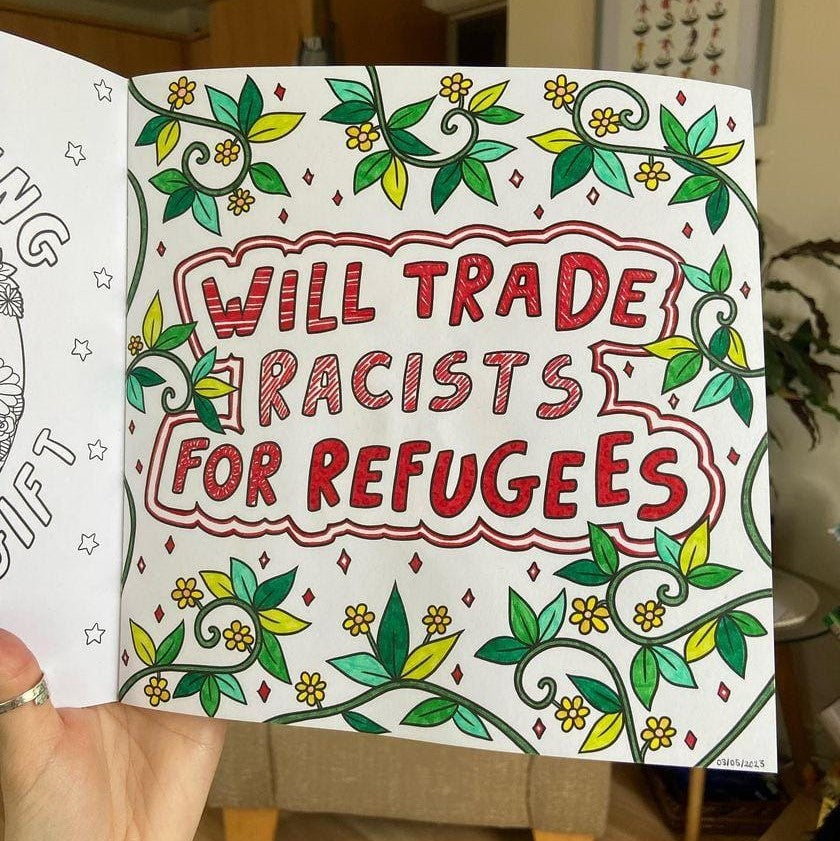 WILL TRADE
RACISTS
FOR REFUGEES
03/05/2023
GIFT